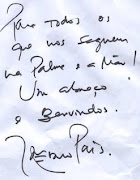 Para todos os
que nos seguem
na Palma e a Mão!
Um abraço
e Bemvindos.
País.